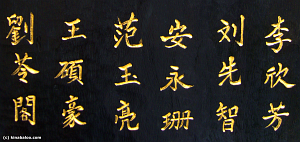 李欣芳
刘先智
安永珊
范玉亮
王硕豪
劉苓閣
(c) kinabaloo.com